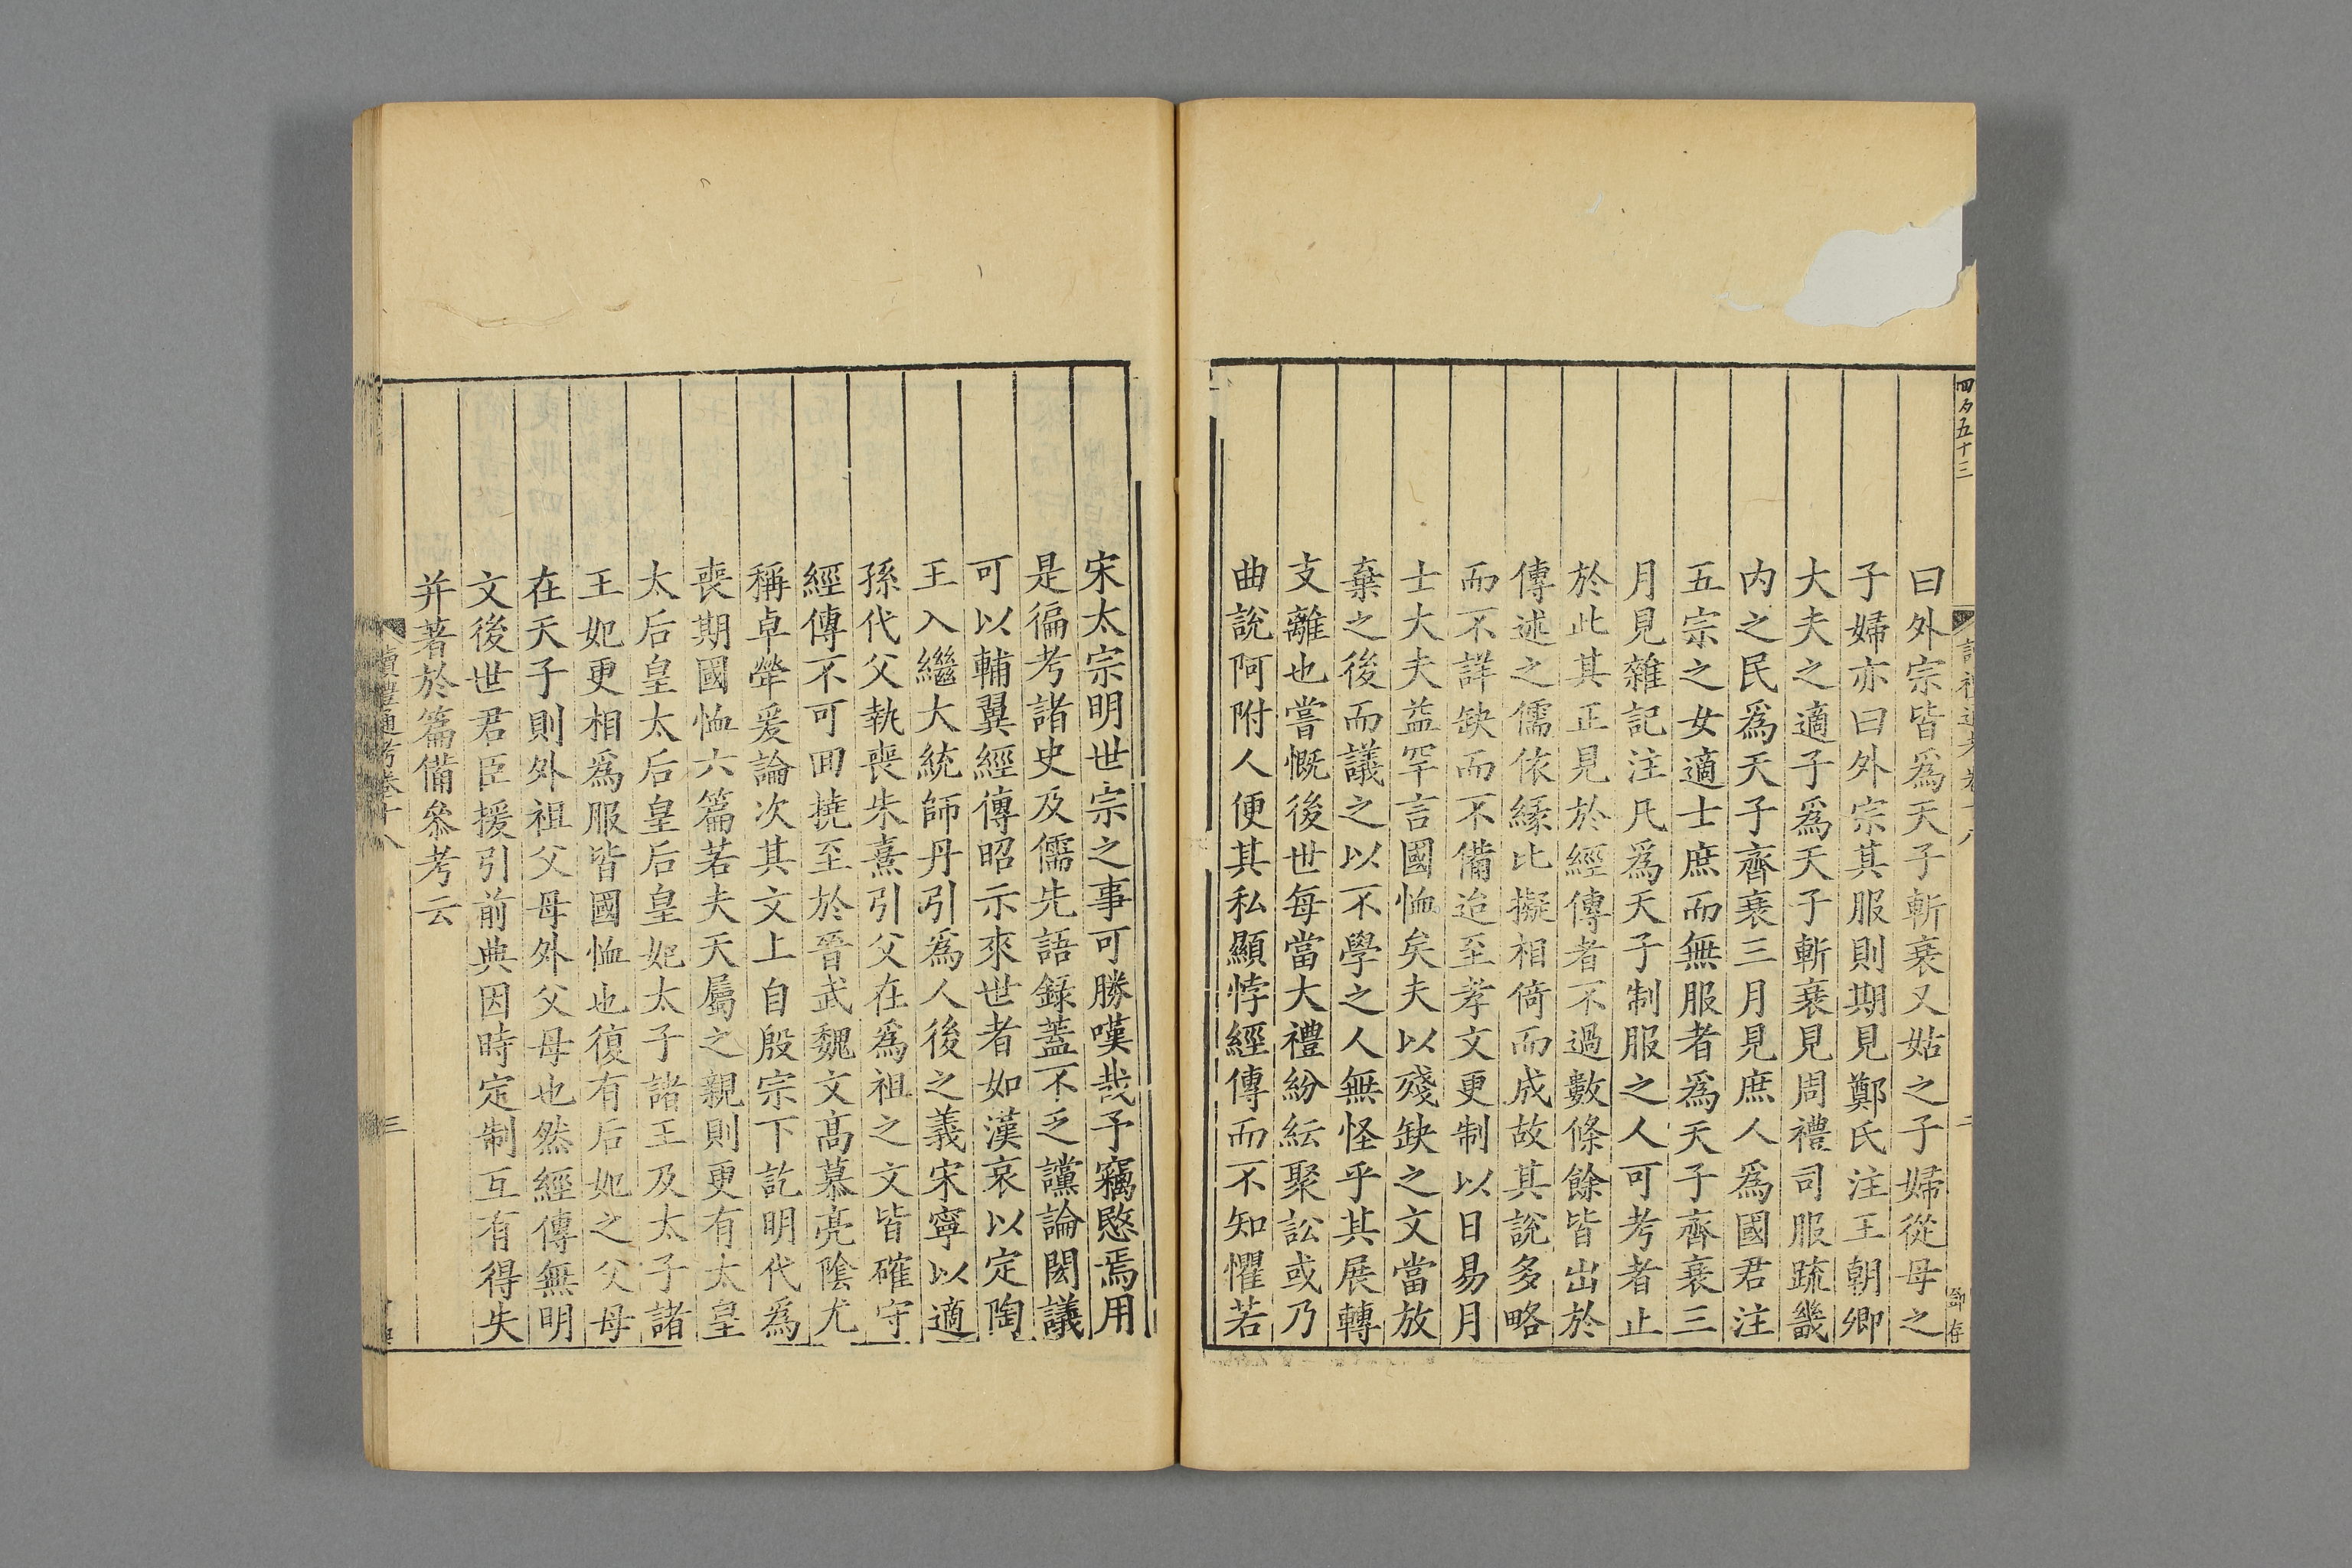 四百五十三
讀禮通考卷十八
二
曰外宗皆爲天子斬衰又姑之子婦從母之
子婦亦曰外宗其服則期見鄭氏注王朝卿
大夫之適子爲天子斬衰見周禮司服疏畿
内之民爲天子齊衰三月見庶人爲國君注
五宗之女適士庶而無服者爲天子齊衰三
月見雜記注凡爲天子制服之人可考者止
於此其正見於經傳者不過數條餘皆出於
傳述之儒依緣比擬相倚而成故其說多略
而不詳缺而不備迨至孝文更制以日易月
士大夫益罕言國恤矣夫以殘缺之文當放
棄之後而議之以不學之人無怪乎其展轉
支離也嘗慨後世每當大禮紛紜聚訟或乃
曲說阿附人便其私顯悖經傳而不知懼若
宋太宗明世宗之事可勝嘆哉予竊愍焉用
是徧考諸史及儒先語錄蓋不乏讜論閎議
可以輔翼經傳昭示來世者如漢哀以定陶
王入繼大統師丹引爲人後之義宋寧以適
孫代父執喪朱熹引父在爲祖之文皆確守
經傳不可回撓至於晉武魏文高慕亮陰尤
稱卓犖爰論次其文上自殷宗下訖明代爲
喪期國恤六篇若夫天屬之親則更有太皇
太后皇太后皇后皇妃太子諸王及太子諸
王妃更相爲服皆國恤也復有后妃之父母
在天子則外祖父母外父母也然經傳無明
文後世君臣援引前典因時定制互有得失
并著於篇備叅考云
讀禮通考卷十八
三